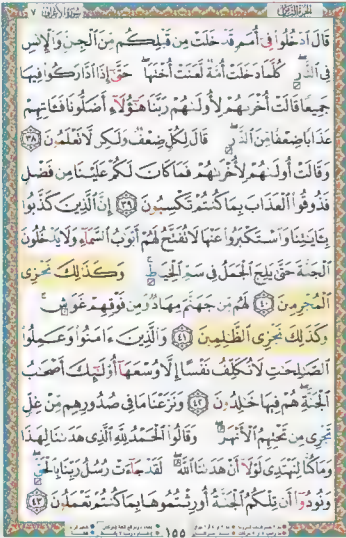 سورة الأعراف ٧
قَالَ ٱدۡخُلُواْ فِيٓ أُمَمٖ قَدۡ خَلَتۡ مِن قَبۡلِكُم مِّنَ ٱلۡجِنِّ وَٱلۡإِنسِ
فِي ٱلنَّارِۖ كُلَّمَا دَخَلَتۡ أُمَّةٞ لَّعَنَتۡ أُخۡتَهَاۖ حَتَّىٰٓ إِذَا ٱدَّارَكُواْ فِيهَا
جَمِيعٗا قَالَتۡ أُخۡرَىٰهُمۡ لِأُولَىٰهُمۡ رَبَّنَا هَٰٓؤُلَآءِ أَضَلُّونَا فَـَٔاتِهِمۡ
عَذَابٗا ضِعۡفٗا مِّنَ ٱلنَّارِۖ قَالَ لِكُلّٖ ضِعۡفٞ وَلَٰكِن لَّا تَعۡلَمُونَ ٣٨
وَقَالَتۡ أُولَىٰهُمۡ لِأُخۡرَىٰهُمۡ فَمَا كَانَ لَكُمۡ عَلَيۡنَا مِن فَضۡلٖ
فَذُوقُواْ ٱلۡعَذَابَ بِمَا كُنتُمۡ تَكۡسِبُونَ ٣٩ إِنَّ ٱلَّذِينَ كَذَّبُواْ
بِـَٔايَٰتِنَا وَٱسۡتَكۡبَرُواْ عَنۡهَا لَا تُفَتَّحُ لَهُمۡ أَبۡوَٰبُ ٱلسَّمَآءِ وَلَا يَدۡخُلُونَ
ٱلۡجَنَّةَ حَتَّىٰ يَلِجَ ٱلۡجَمَلُ فِي سَمِّ ٱلۡخِيَاطِۚ وَكَذَٰلِكَ نَجۡزِي
ٱلۡمُجۡرِمِينَ ٤٠ لَهُم مِّن جَهَنَّمَ مِهَادٞ وَمِن فَوۡقِهِمۡ غَوَاشٖۚ
وَكَذَٰلِكَ نَجۡزِي ٱلظَّٰلِمِينَ ٤١ وَٱلَّذِينَ ءَامَنُواْ وَعَمِلُواْ
ٱلصَّٰلِحَٰتِ لَا نُكَلِّفُ نَفۡسًا إِلَّا وُسۡعَهَآ أُوْلَٰٓئِكَ أَصۡحَٰبُ
ٱلۡجَنَّةِۖ هُمۡ فِيهَا خَٰلِدُونَ ٤٢ وَنَزَعۡنَا مَا فِي صُدُورِهِم مِّنۡ غِلّٖ
تَجۡرِي مِن تَحۡتِهِمُ ٱلۡأَنۡهَٰرُۖ وَقَالُواْ ٱلۡحَمۡدُ لِلَّهِ ٱلَّذِي هَدَىٰنَا لِهَٰذَا
وَمَا كُنَّا لِنَهۡتَدِيَ لَوۡلَآ أَنۡ هَدَىٰنَا ٱللَّهُۖ لَقَدۡ جَآءَتۡ رُسُلُ رَبِّنَا بِٱلۡحَقِّۖ
وَنُودُوٓاْ أَن تِلۡكُمُ ٱلۡجَنَّةُ أُورِثۡتُمُوهَا بِمَا كُنتُمۡ تَعۡمَلُونَ ٤٣
١٥٥